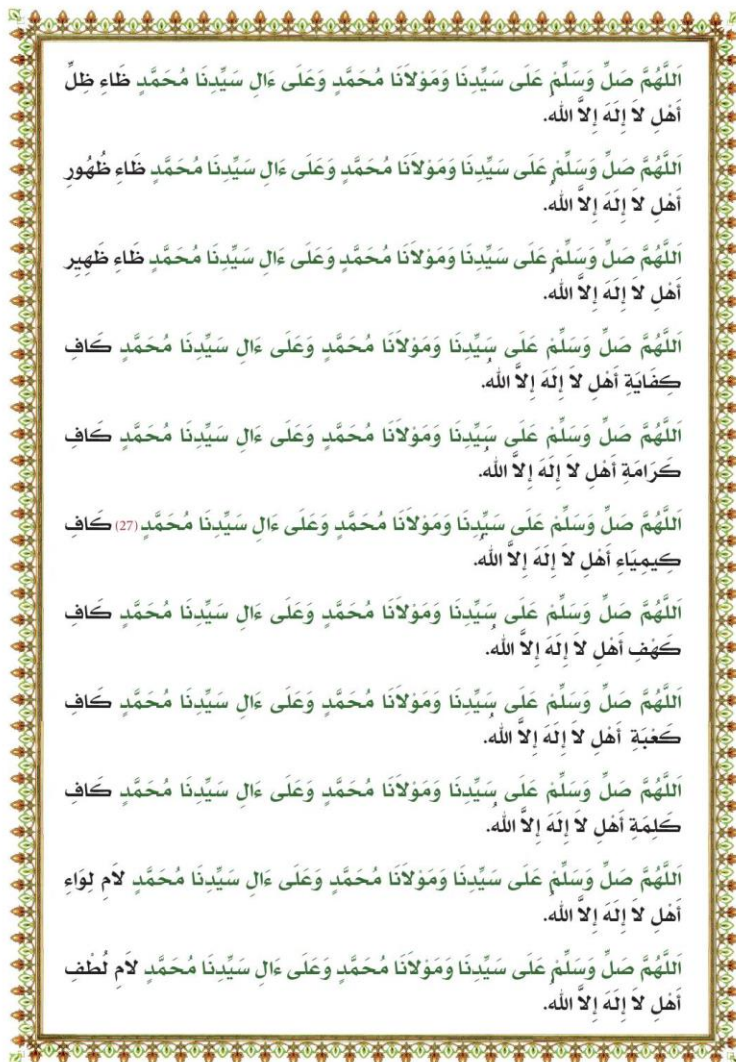 اَللَّهُمَّ صَلِّ وَسَلِّمْ عَلَى سَيِّدِنَا وَمَوْلاَنَا مُحَمَّدٍ وَعَلَى ءَالِ سَيِّدِنَا مُحَمَّدٍ ظَاءِ ظِلِّ
أَهْلِ لاَ إِلَهَ إِلاَّ الله.
اَللَّهُمَّ صَلِّ وَسَلِّمْ عَلَى سَيِّدِنَا وَمَوْلاَنَا مُحَمَّدٍ وَعَلَى ءَالِ سَيِّدِنَا مُحَمَّدٍ ظَاءِ ظُهُورِ
أَهْلِ لاَ إِلَهَ إِلاَّ الله.
اَللَّهُمَّ صَلِّ وَسَلِّمْ عَلَى سَيِّدِنَا وَمَوْلاَنَا مُحَمَّدٍ وَعَلَى ءَالِ سَيِّدِنَا مُحَمَّدٍ ظَاءِ ظَهِيرِ
أَهْلِ لاَ إِلَهَ إِلاَّ الله.
اَللَّهُمَّ صَلِّ وَسَلِّمْ عَلَى سَيِّدِنَا وَمَوْلاَنَا مُحَمَّدٍ وَعَلَى ءَالِ سَيِّدِنَا مُحَمَّدٍ كَافِ
كِفَايَةِ أَهْلِ لاَ إِلَهَ إِلاَّ الله.
اَللَّهُمَّ صَلِّ وَسَلِّمْ عَلَى سَيِّدِنَا وَمَوْلاَنَا مُحَمَّدٍ وَعَلَى ءَالِ سَيِّدِنَا مُحَمَّدٍ كَافِ
كَرَامَةِ أَهْلِ لاَ إِلَهَ إِلاَّ الله.
اَللَّهُمَّ صَلِّ وَسَلِّمْ عَلَى سَيِّدِنَا وَمَوْلاَنَا مُحَمَّدٍ وَعَلَى ءَالِ سَيِّدِنَا مُحَمَّدٍ (27) كَافِ
كِيمِيَاءِ أَهْلِ لاَ إِلَهَ إِلاَّ الله.
اَللَّهُمَّ صَلِّ وَسَلِّمْ عَلَى سَيِّدِنَا وَمَوْلاَنَا مُحَمَّدٍ وَعَلَى ءَالِ سَيِّدِنَا مُحَمَّدٍ كَافِ
كَهْفِ أَهْلِ لاَ إِلَهَ إِلاَّ الله.
اَللَّهُمَّ صَلِّ وَسَلِّمْ عَلَى سَيِّدِنَا وَمَوْلاَنَا مُحَمَّدٍ وَعَلَى ءَالِ سَيِّدِنَا مُحَمَّدٍ كَافِ
كَعْبَةِ أَهْلِ لاَ إِلَهَ إِلاَّ الله.
اَللَّهُمَّ صَلِّ وَسَلِّمْ عَلَى سَيِّدِنَا وَمَوْلاَنَا مُحَمَّدٍ وَعَلَى ءَالِ سَيِّدِنَا مُحَمَّدٍ كَافِ
كَلِمَةِ أَهْلِ لاَ إِلَهَ إِلاَّ الله.
اَللَّهُمَّ صَلِّ وَسَلِّمْ عَلَى سَيِّدِنَا وَمَوْلاَنَا مُحَمَّدٍ وَعَلَى ءَالِ سَيِّدِنَا مُحَمَّدٍ لاَمِ لِوَاءِ
أَهْلِ لاَ إِلَهَ إِلاَّ الله.
اَللَّهُمَّ صَلِّ وَسَلِّمْ عَلَى سَيِّدِنَا وَمَوْلاَنَا مُحَمَّدٍ وَعَلَى ءَالِ سَيِّدِنَا مُحَمَّدٍ لاَمِ لُطْفِ
أَهْلِ لاَ إِلَهَ إِلاَّ الله.